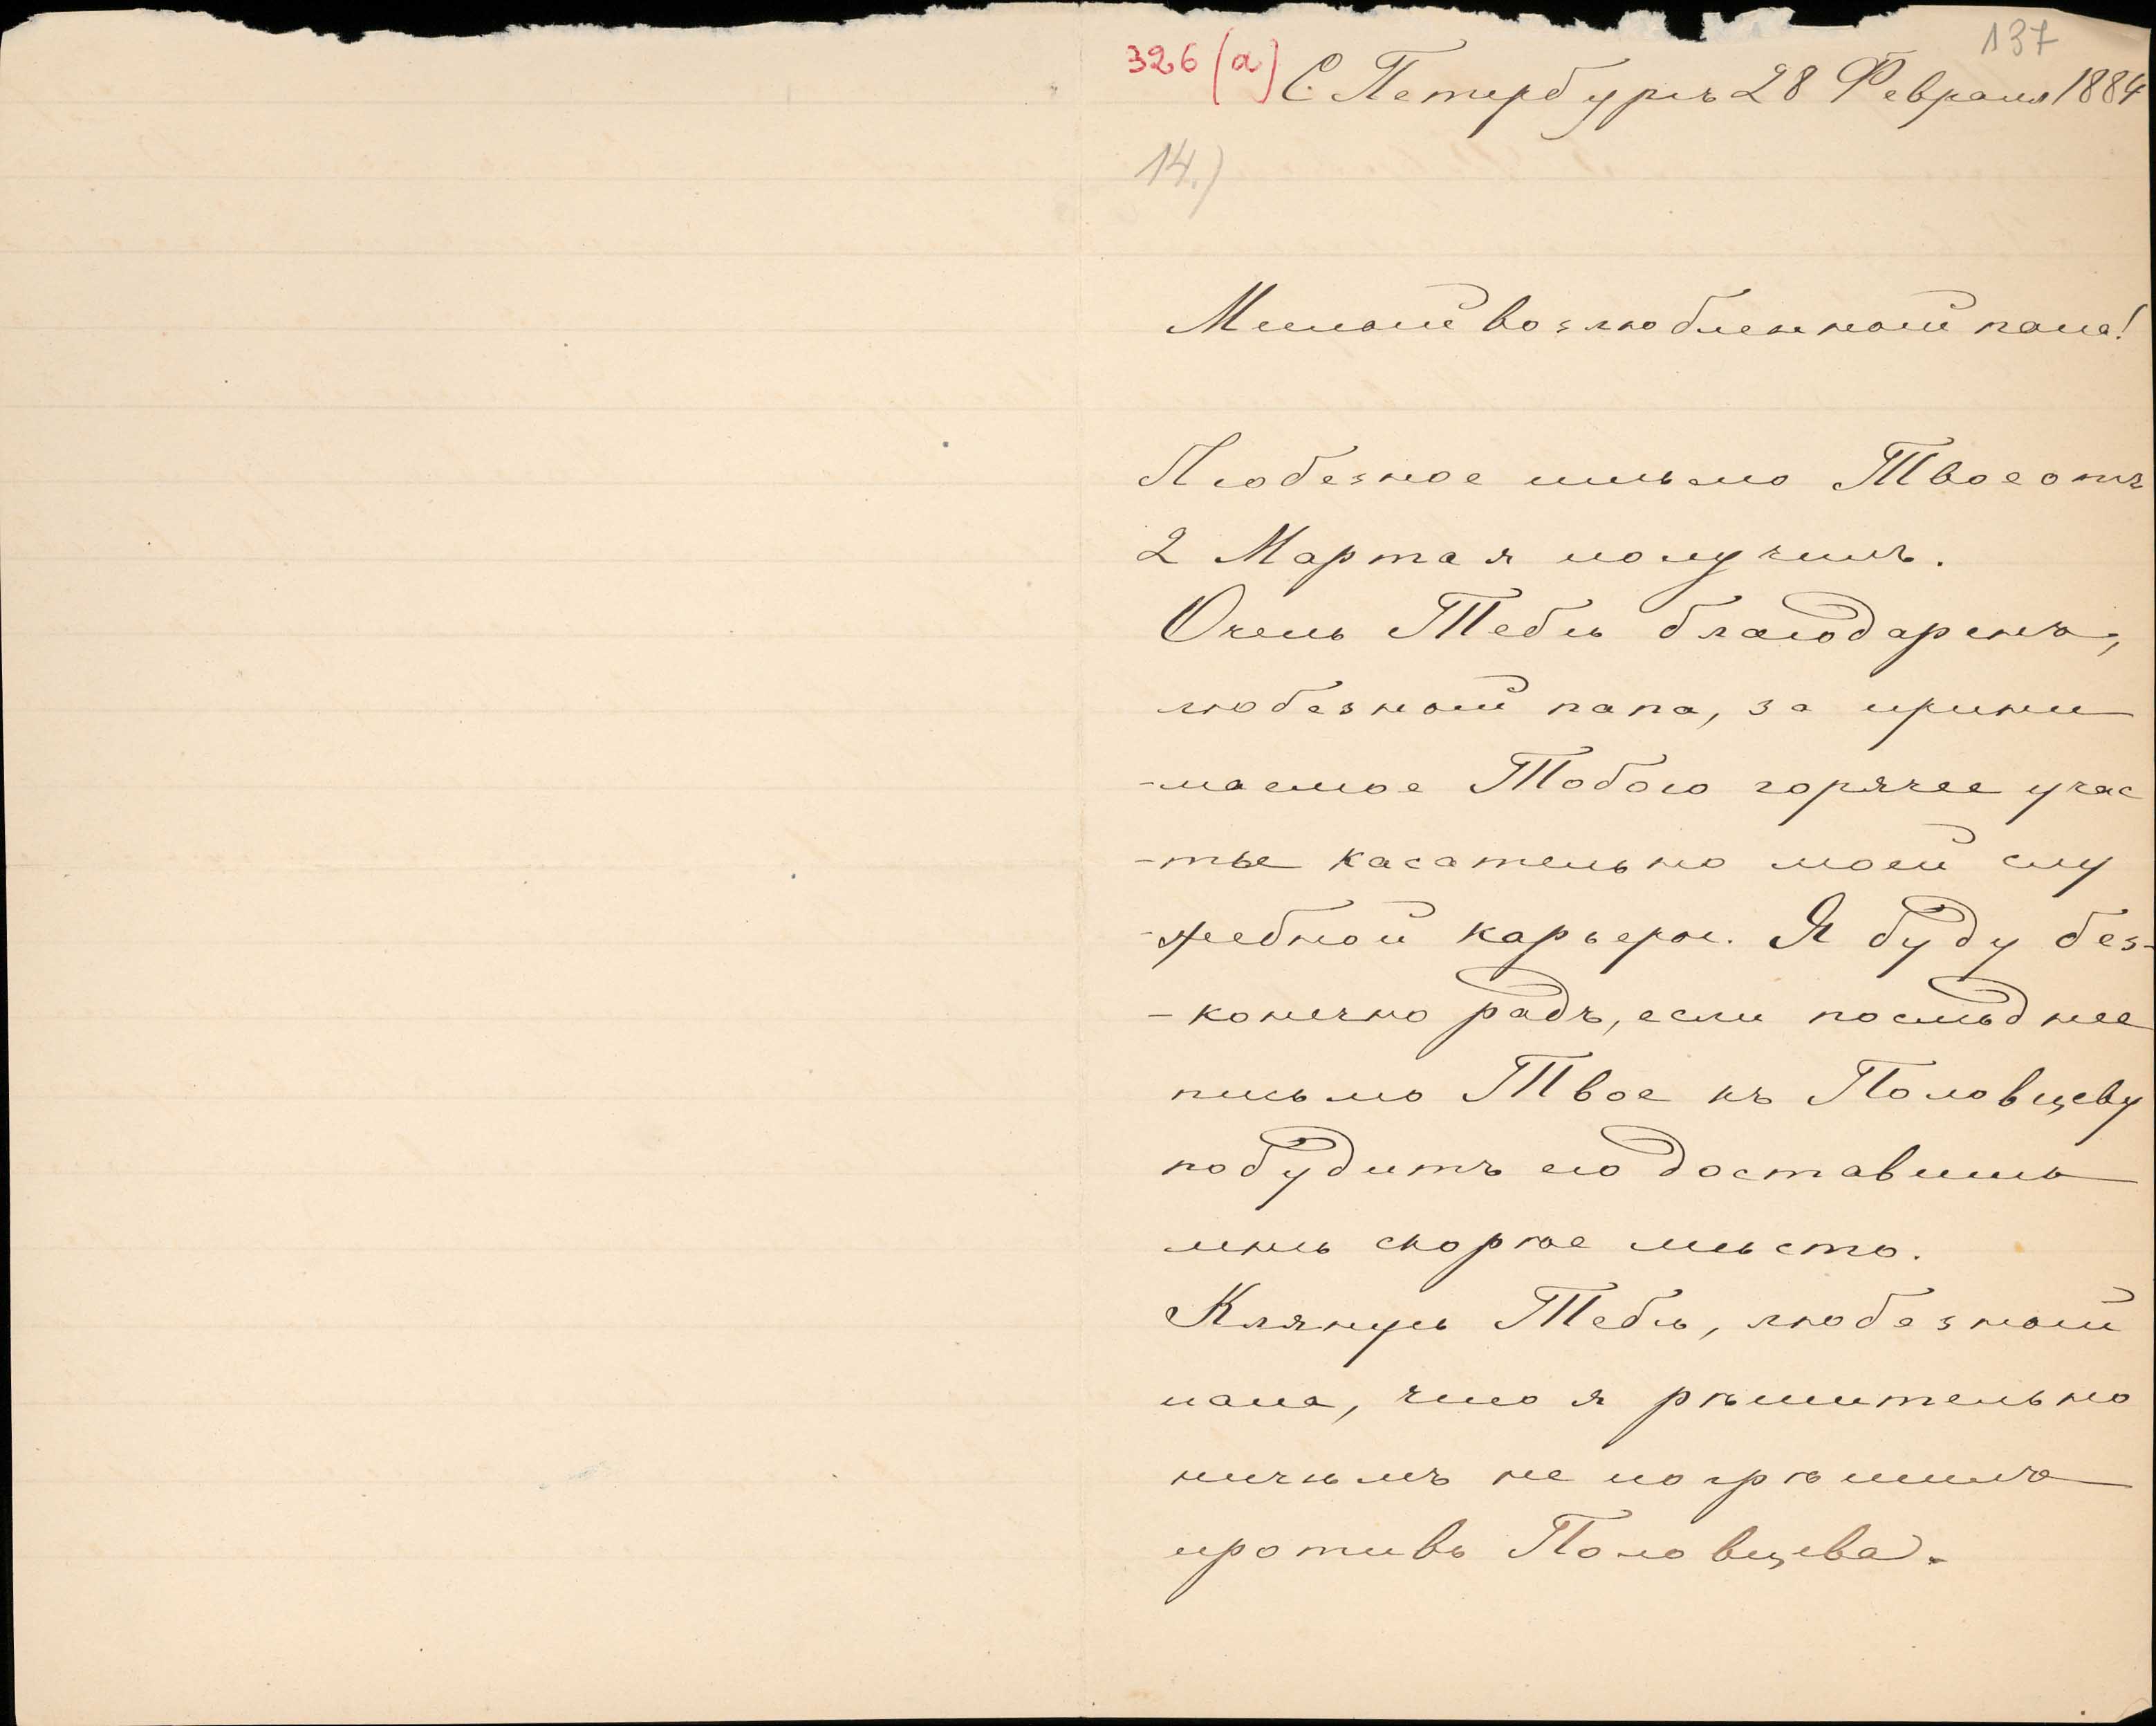 137
326 (а) С. Петербургъ 28 Февраля 1884
14.)
Милый возлюбленный папа!
Любезное письмо Твое отъ
2 Марта я получилъ.
Очень Тебѣ благодаренъ,
любезный папа, за прини
-маемое Тобою горячее учас
-тье касательно моей слу
-жебной карьеры. Я буду без-
-конечно радъ, если послѣднее
письмо Твое къ Половцеву
побудитъ его доставить
мнѣ скорѣе мѣсто.
Клянусь Тебѣ, любезный
папа, что я рѣшительно
ничѣмъ не погрѣшилъ
противъ Половцева.